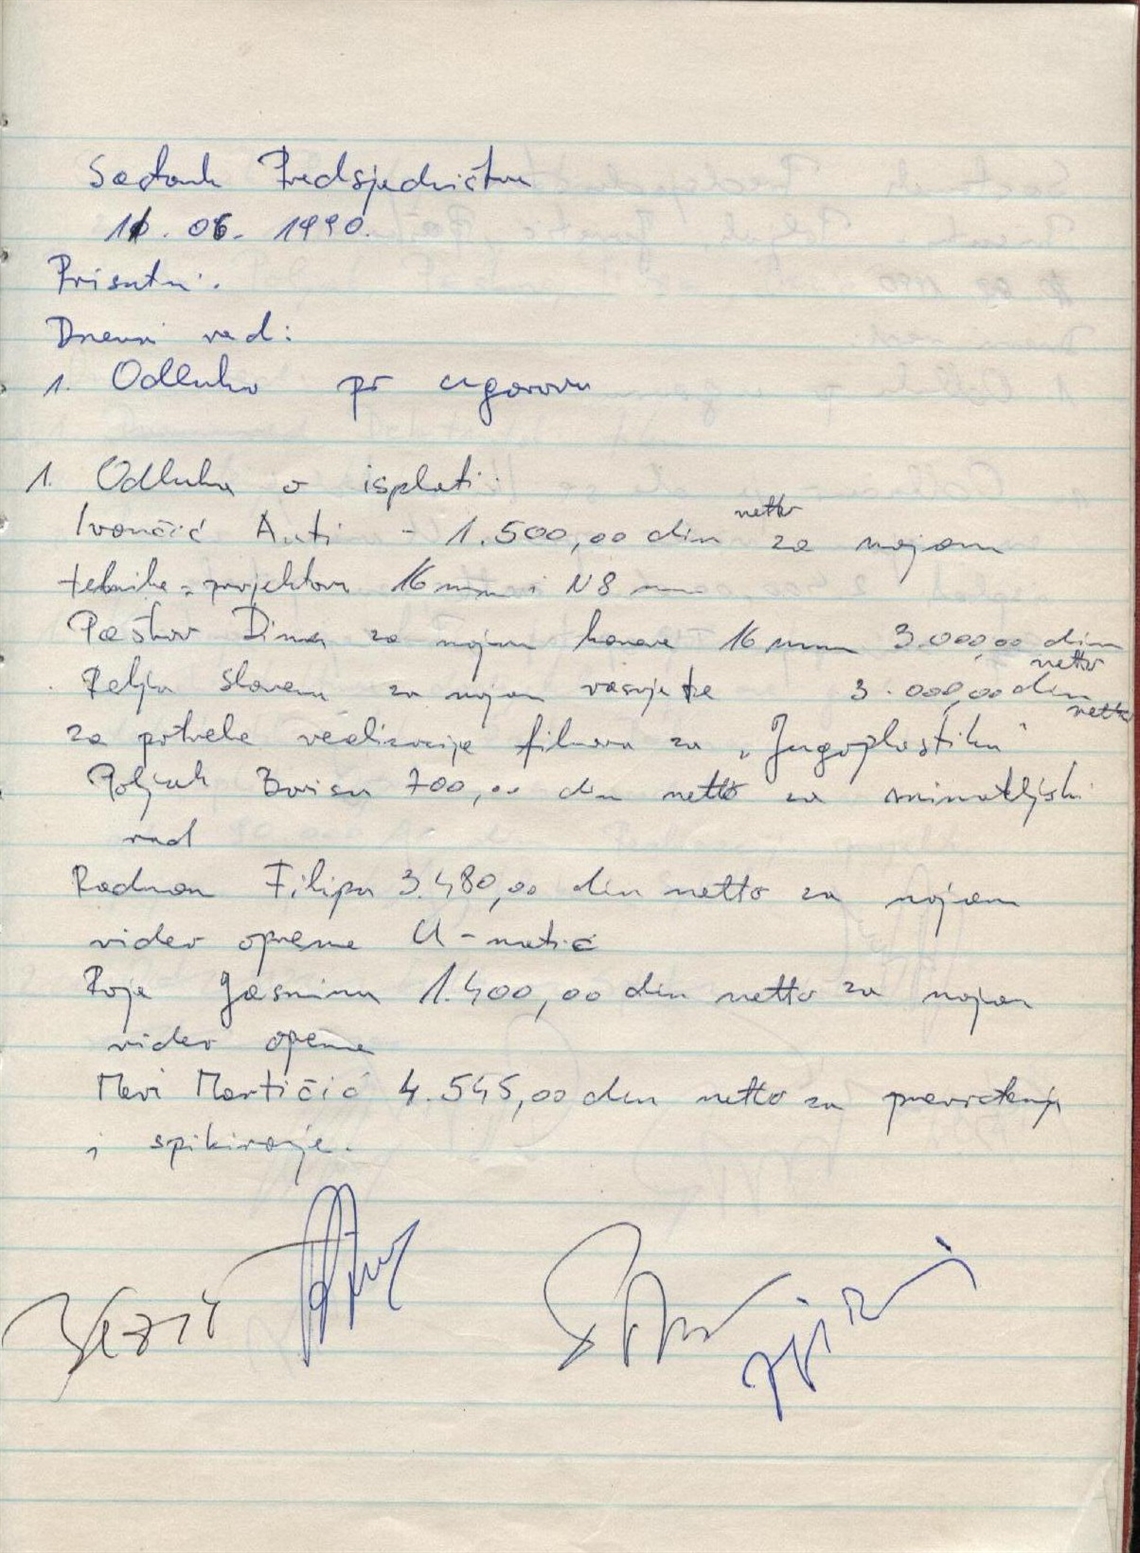 Sastanak Predsjedništva
11. 06. 1990.
Prisutni:
Dnevni red:
1. Odluka po ugovoru
1. Odluka o isplati:
Ivančić Anti - 1.500,00 din netto za najam
tehnike - projektora 16 mm i N8 mm
Paškov Dina za najam kamere 16 mm 3.000,00 din netto
Relja Slaven za najam rasvjete 3.000,00 din netto
za potrebe realizacije filmova za "Jugoplastiku"
Poljak Borisu 700,00 din netto za snimateljski
rad
Radman Filipu 3.480,00 din netto za najam
video opreme U-matic
Roje Jasminu 1.400,00 din netto za najam
video opeme
Meri Martičić 4.545,00 din netto za
i spikiranje.